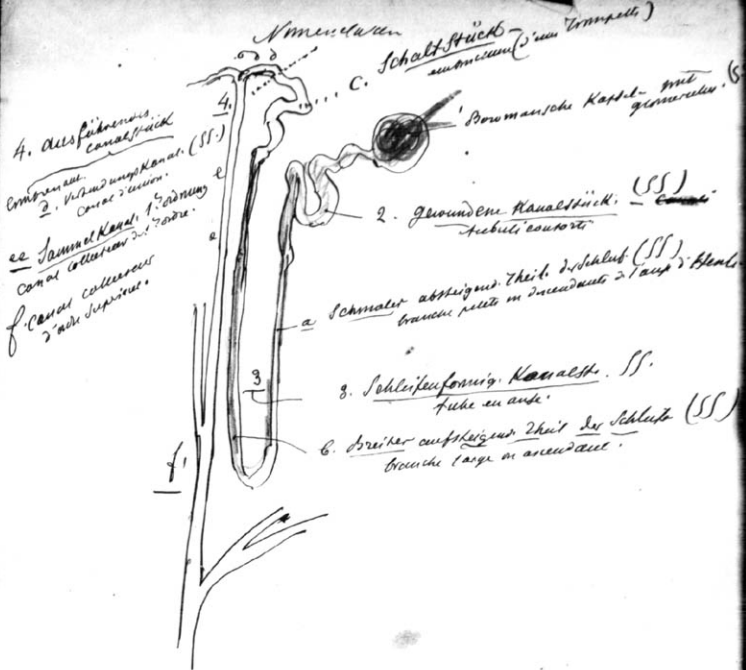 Nomenclatur
C. Schaltstück
(d'une trompette)
4.
4. ausführendes
canalstück
comprenant
d. Verbindungskanal. (SS.)
canal d'union.
ee Sammelkanal 1. Ordnung
canal collecteur de 1. ordre.
f. canal collecteur
d'ordre supérieur.
Bowmansche Kapsel mit
glomerulus.
e
e
2. gewundene Kanalstück. (SS)
tubuli contorti
a Schmaler absteigend. Theil. der Schleife (SS)
branche descendante de l'anse d'Henle
3
3. Schleifenformig. Kanalst. SS.
tube en anse.
b. Breiter aufsteigend. Theil der Schleife (SS)
branche large ou ascendante.
f